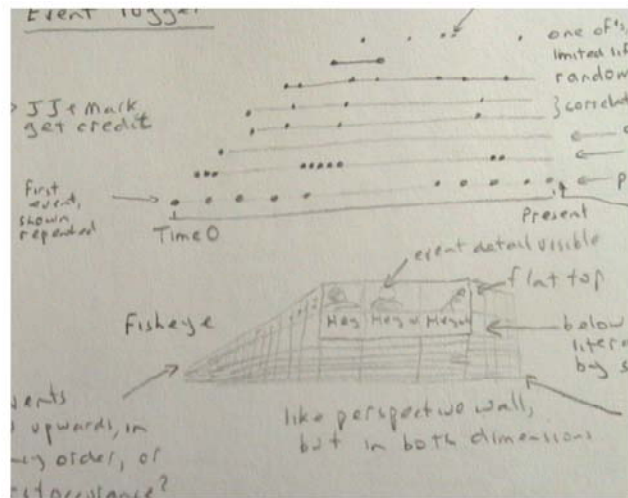 Event Logger
one of's,
limited lif
random
} correlat
> JJ + Mark
get credit
First
event,
shown
repeated
Time 0
Present
event detail visible
flat top
Fisheye
below
litera
by s
vents
upwards, in
order, or
like perspective wall,
but in both dimensions